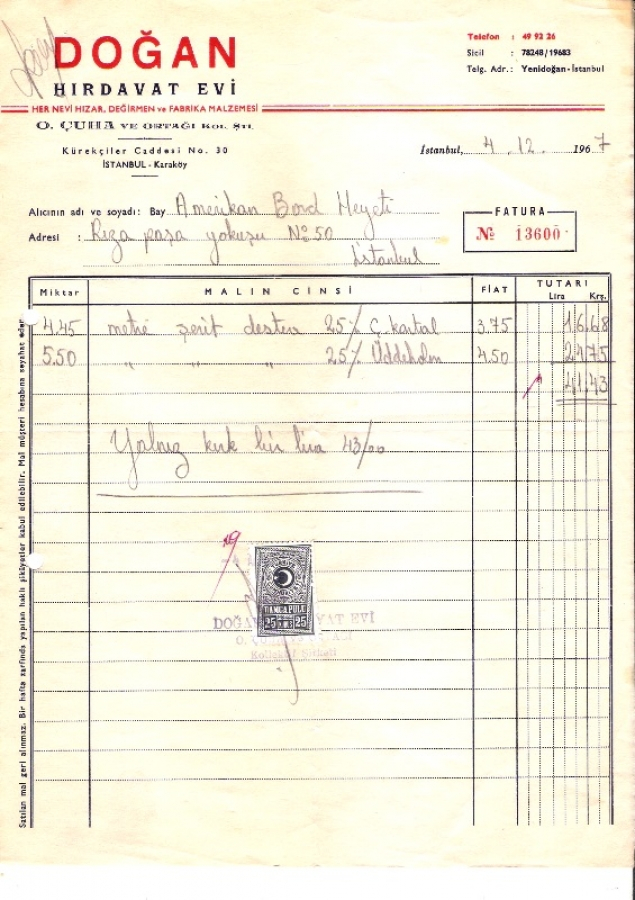 DOĞAN
HIRDAVAT EVİ
HER NEVİ HIZAR, DEĞİRMEN ve FABRİKA MALZEMESİ
O. ÇUHA VE ORTAĞI KOL. ŞTİ.
Kürekçiler Caddesi No. 30
İSTANBUL - Karaköy
Telefon : 49 92 26
Sicil : 78248/19683
Telg. Adr.: Yenidoğan-İstanbul
İstanbul, 4.12.1967
Alıcının adı ve soyadı: Bay Amerikan Bord Heyeti
Adresi : Rıza paşa yokuşu No 50
İstanbul
FATURA
No 13600
Miktar MALIN CİNSİ FİAT TUTARI
Lira Krş.
4.45 metre şerit destere 25% Ç. kartal 3.75 16.68
5.50 " " " 25% Uddeholm 4.50 24.75
41.43
Yalnız kırk bir lira 43/00
DAMGA PULU
25 25
DOĞAN HIRDAVAT EVİ
Kollektif Şirketi
Satılan mal geri alınmaz. Bir hafta zarfında yapılan haklı şikâyetler kabul edilebilir. Mal müşteri hesabına seyahat eder.